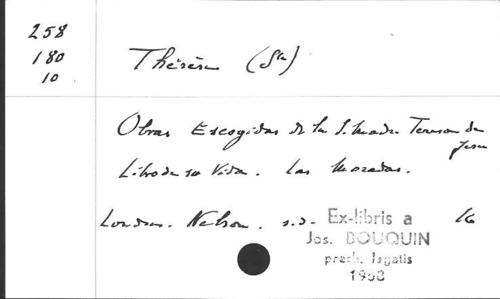 258
180
10
Thérèse (Ste)
Obras Escogidas de la S. Madre Teresa de
Jesu
Libro de su Vida. Las Moradas.
Londres. Nelson. s.d. 16
Ex-libris a
Jos. BOUQUIN
presb. legatis
1968